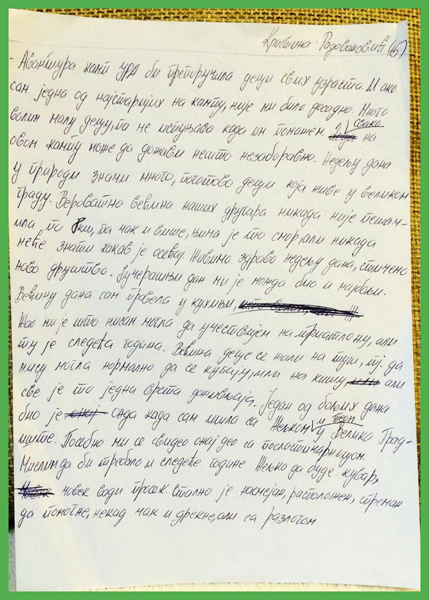 Кристина Радовановић (15)
- Авантура камп УРА би препоручила деци свих узраста. Иако
сам једна од најстаријих на кампу, није ми било досадно. Много
волим малу децу, па ме испуњава када им помогнем. Свако на
овом кампу може да доживи нешто незаборавно. Недељу дана
у природи значи много, поготово деци која живе у великом
граду. Вероватно већина наших другара никада није пешач-
ила по 8км, па чак и више, њима је то смор, али никада
неће знати какав је осећај. Живимо здраво недељу дана, стичемо
ново друштво. Јучерашњи дан ми је можда био и најбољи.
Већину дана сам провела у кухињи,
Жао ми је што нисам могла да учествујем на триатлону, али
ту је следећа година. Већина деце се жали на туш, тј. да
нису могла нормално да се купају, или на кишу, али
све је то једна врста доживљаја. Један од бољих дана
био је онда када сам ишла са Жељком и у Велико Град-
иште. Посебно ми се свидео онај део са посластичарницом
Мислим да би требало и следеће године Жељко да буде кувар,
човек води просек. Стално је насмејан, расположен, спреман
да помогне, некад чак и дрекне, али са разлогом